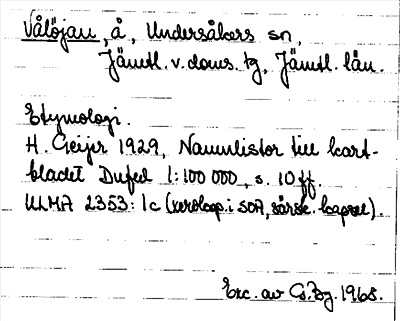 Vålöjan, å, Undersåkers sn,
Jämtl. v. doms. tg, Jämtl. län.
Etymologi.
H. Geijer 1929, Namnlistor till kart-
bladet Dufed 1:100 000, s. 10 ff.
ULMA 2353:1c (xerokop. i SOA, särsk. kapsel).
Exc. av G. Bg. 1968.